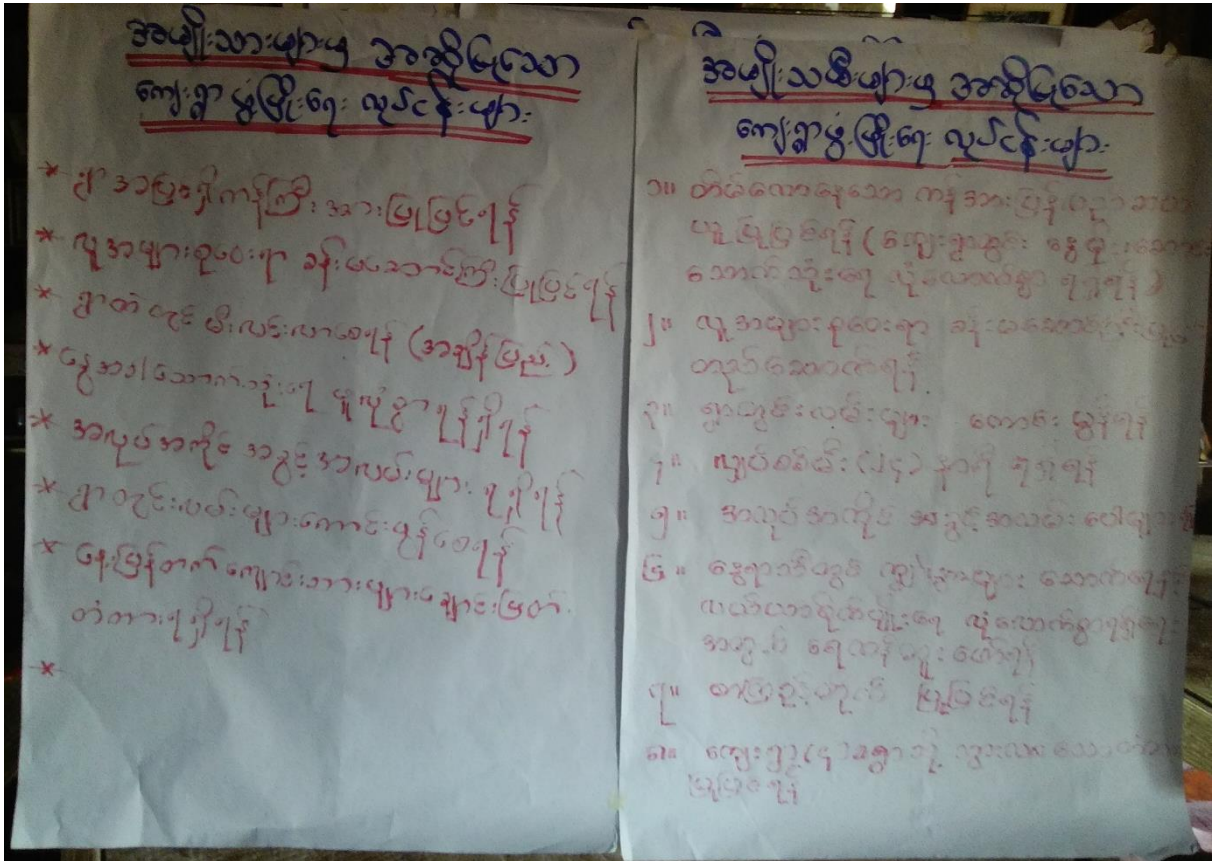 အမျိုးသားများမှ အဆိုပြုသော
ကျေးရွာဖွံ့ဖြိုးရေး လုပ်ငန်းများ
* ရွာအပြင်ရှိကန်ကြီးအားပြုပြင်ရန်
* လူအများစုဝေးရာ ခန်းမဆောင်ကြီးပြုပြင်ရန်
* ရွာတံတိုင်း မီးလင်းလာစေရန် (အချိန်ပြည့်)
* နွေအခါသောက်သုံးရေ ဖူလုံစွာရရှိရန်
* အလုပ်အကိုင် အခွင့်အလမ်းများ ရရှိရန်
* ရွာတွင်းလမ်းများကောင်းမွန်စေရန်
* နေ့ပြန်တက်ကျောင်းသားများချောင်းဖြတ်
တံတားရရှိရန်
*
အမျိုးသမီးများမှ အဆိုပြုသော
ကျေးရွာဖွံ့ဖြိုးရေး လုပ်ငန်းများ
၁။ တိမ်ကောနေသော ကန်အားပြန်လည်
ပြုပြင်ရန် (ကျေးရွာတွင်း
သောက်သုံးရေ လုံလောက်စွာ ရရှိရန်)
၂။ လူအများစုဝေးရာ ခန်းမဆောင်
တည်ဆောက်ရန်
၃။ ရွာတွင်းလမ်းများ ကောင်းမွန်ရန်
၄။ လျှပ်စစ်မီး (၂၄) နာရီ ရရှိရန်
၅။ အလုပ်အကိုင် အခွင့်အလမ်းပေါများရန်
၆။ နွေရာသီတွင် ကျွဲနွားများ သောက်ရေနှင့်
လယ်ယာစိုက်ပျိုးရေ လုံလောက်စွာရရှိရေး
အတွက် ရေကန်တူးဖော်ရန်
၇။ စာကြည့်တိုက် ပြုပြင်ရန်
၈။ ကျေးရွာ (၄) ရွာသို့ သွားလာသော
ပြုပြင်ရန်